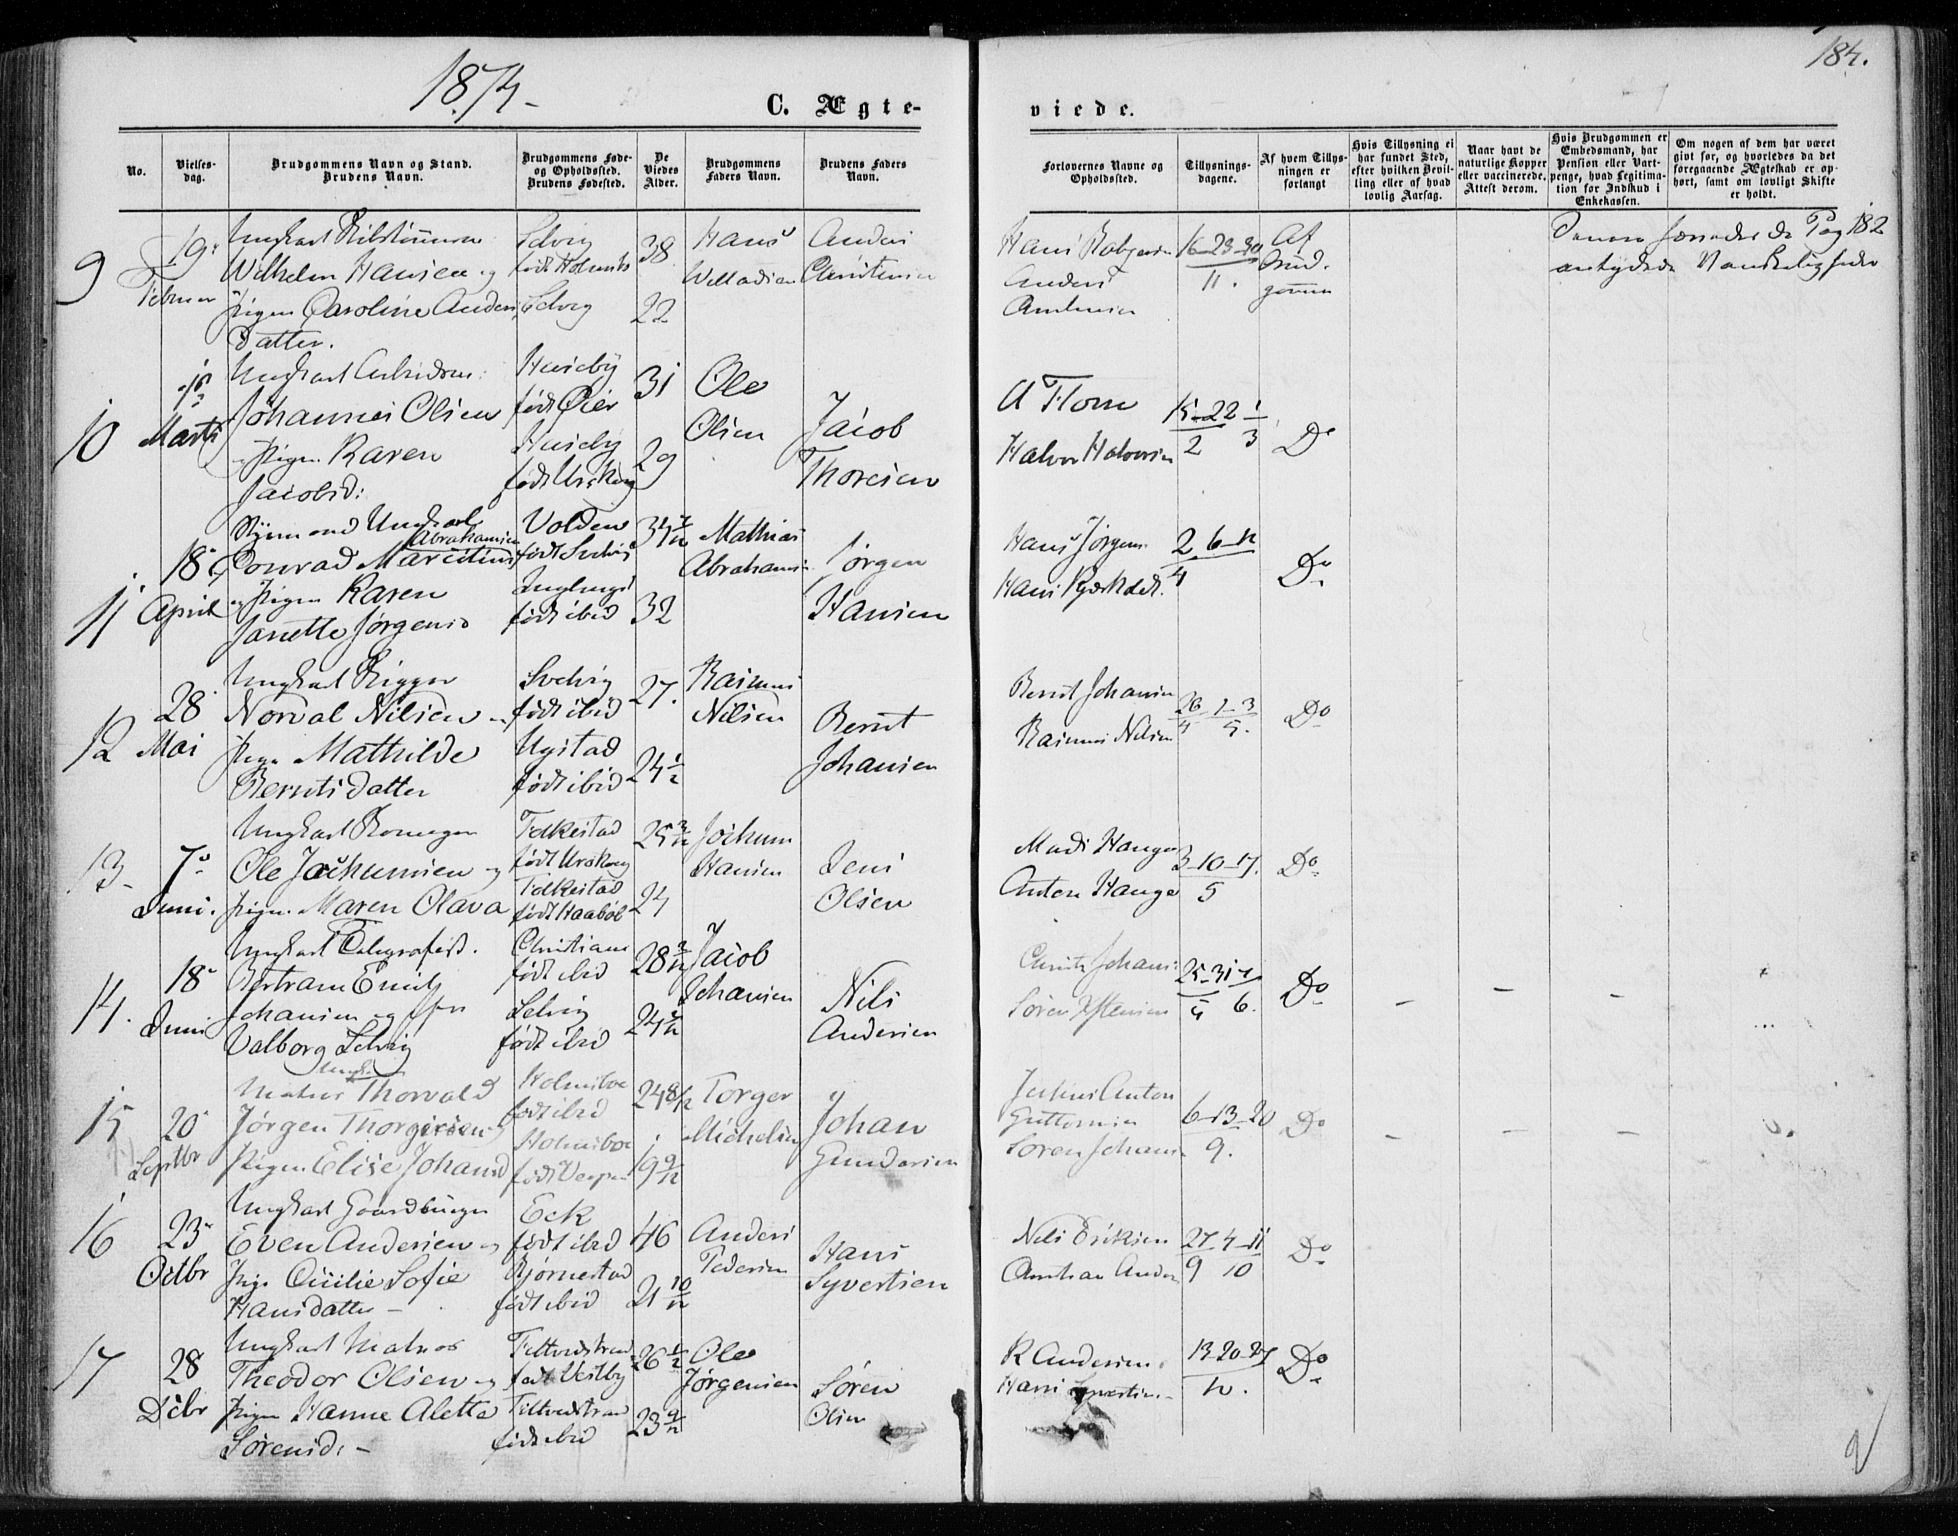 1874-
184.
C. Ægte-
viede.
No.
Vielses-
dag.
Brudgommens Navn og Stand.
Brudens Navn.
Brudgommens Føde-
og Opholdssted.
Brudens Fødested.
De
Viedes
Alder.
Brudgommens
Faders Navn.
Brudens Faders
Navn.
Forlovernes Navne og
Opholdssted.
Tillysnings-
dagene.
Af hvem Tillys-
ningen er
forlangt
Hvis Tillysning ei
har fundet Sted,
efter hvilken Bevil-
ling eller af hvad
lovlig Aarsag.
Naar havt de
naturlige Kopper
eller vaccinerede.
Attest derom.
Hvis Brudgommen er
Embedsmand, har
Pension eller Vart-
penge, hvad Legitima-
tion for Indskud i
Enkekassen.
Om nogen af dem har været
gift før, og hvorledes da det
foregaaende Ægteskab er op-
hørt, samt om lovligt Skifte
er holdt.
9
19
Februar
Ungkarl
Wilhelm Hansen og
Pigen Caroline Anders
Datter.
Selvig
født Holmsbo
Selvig
38
22
Hans
Anders
Christensen
Hans
Anders
16-23-30
11.
Af
Brud-
gommen
Pag 182
antydede Vanskeligheder
10
Marts
Ungkarl
Johannes Olsen
Pigen Karen
Jacobsd:
Huseby
født Øier
Huseby
født Urskoug
31
29
Ole
Olsen
Jacob
Thoresen
A Horn
Halvor Halvorsen
15-22 1
2 3
Do
11
18
April
Styrmand Ungkarl
Abrahamsen
Conrad Marcelius
og Pigen Karen
Janette Jørgensd
Volden
født Svelvig
født ibid
34
32
Mathias
Abrahams
Jørgen
Hansen
Hans Jørgens
Hans
2 6-12
4
Do
12
28
Mai
Ungkarl Rigger
Norval Nilsen
Pige Mathilde
Berntsdatter
Svelvig
født ibid
født ibid
27.
24 1/2
Rasmus
Nilsen
Bernt
Johansen
Bernt Johansen
Rasmus Nilsen
26 1-3
4 5.
Do
13
7
Juni.
Ungkarl
Ole Jochumsen og
Pigen Maren Olava
født Urskoug
født Haabøl
25
24
Jochum
Hansen
Jens
Olsen
Mads Hauge
Anton Hauge
3-10-17.
5
Do
14.
18
Juni
Ungkarl Telegrafist.
Bertram Emil
Johansen og
Valborg Selvig
Christiania
født ibid
Selvig
født ibid
28
24
Jacob
Johansen
Nils
Andersen
25-31-7
5 6.
Do
15
20
Septbr
Ungk.
Matros Thorvald
Jørgen Thorgersen
Pigen Elise Johansd
Holmsbo
født ibid
Holmsbo
24 8/12
19 9/12
Torger
Michelsen
Johan
Gundersen
Anton
Guttormsen
Søren Johans
6-13-20
9.
Do
16
23
Octbr
Ungkarl Gaardbruger
Even Andersen og
Pige Cecilie Sofie
Hansdatter -
Eek
født ibid
Bjørnestad
født ibid
46
21 10/12
Anders
Pedersen
Hans
Syvertsen
Nils Eriksen
27 4-11
9 10
Do
17
28
Dcbr
Ungkarl Matros
Theodor Olsen og
Pigen Hanne Aletta
Sørensd: -
Filtvedtstrand
født Vestby
Filtvedtstrand
født ibid
26
23 9/12
Ole
Jørgensen
Søren
Olsen
R Andersen
Hans Syvertsen
13-20-27
12.
Do